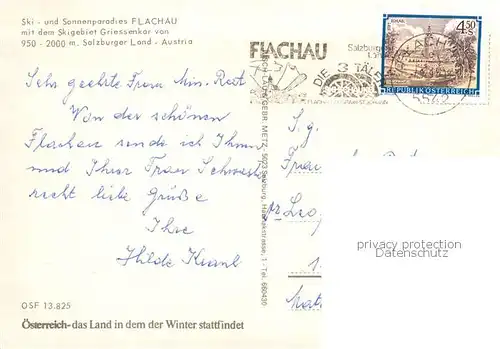 Ski - und Sonnenparadies FLACHAU
mit dem Skigebiet Griessenkar von
950 - 2000 m, Salzburger Land - Austria
Sehr geehrte Frau Min. Rest
Von der schönen
Flachau sende ich Ihnen
und Ihrer Frau
recht liebe Grüße
Ihre
Hilde
OSF 13.825
Österreich - das Land in dem der Winter stattfindet
GEBR. METZ, 5023 Salzburg, 1 - Tel.
FLACHAU
Salzburger
DIE 3 TÄLER
4.50
S
REPUBLIK ÖSTERREICH
S. g.
Frau
privacy protection
Datenschutz